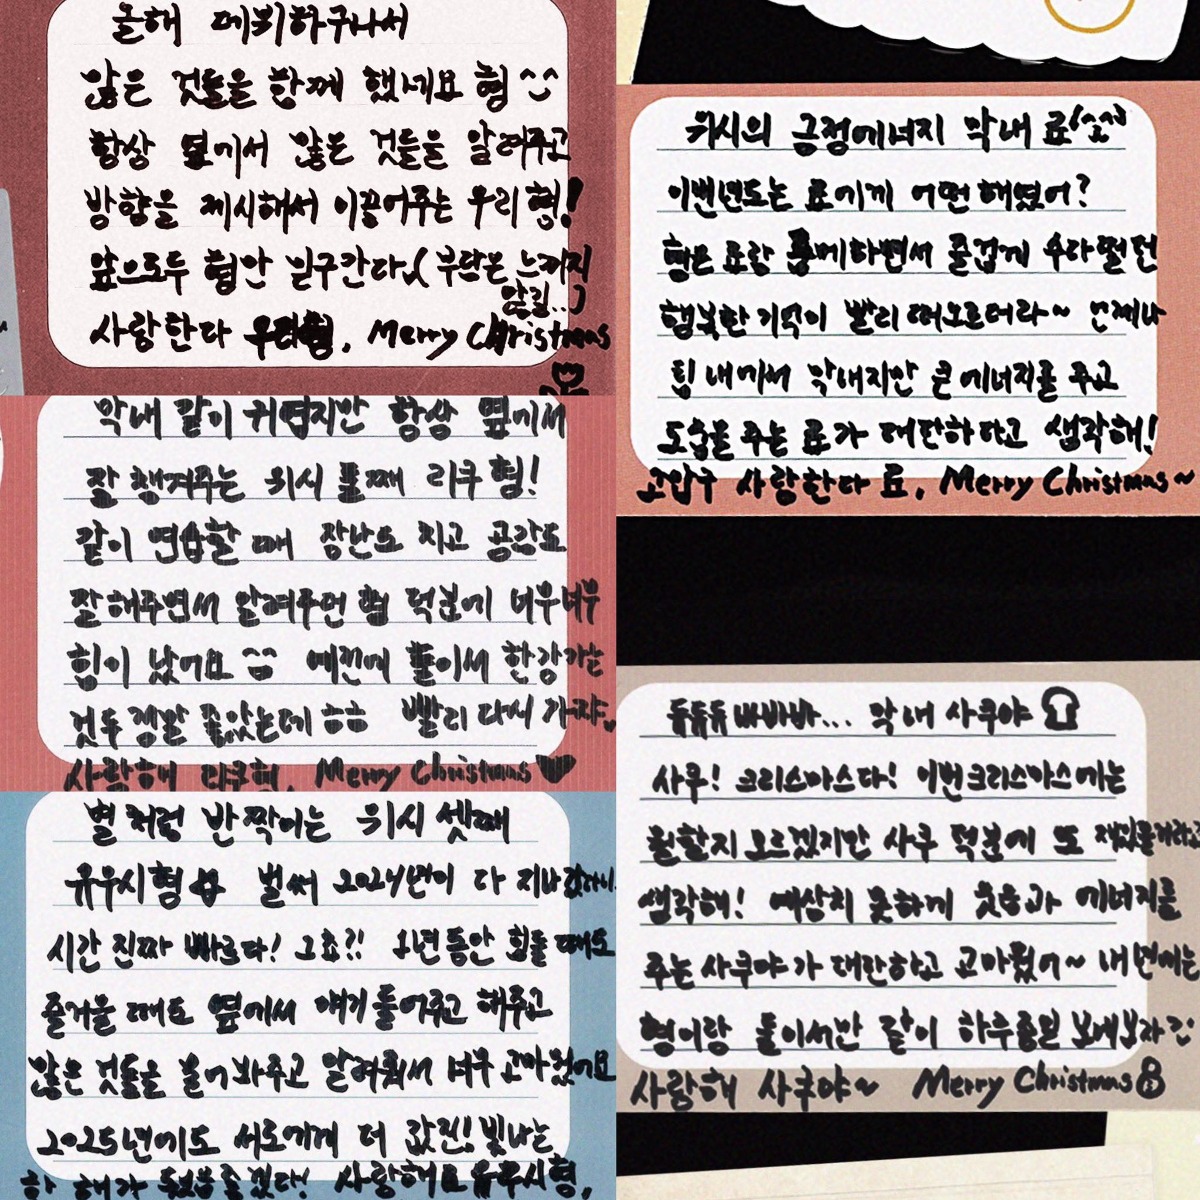 올해 데뷔하구나서
많은 것들을 함께 했네요 형^^
항상 옆에서 많은 것들을 알려주고
방향을 제시해서 이끌어주는 우리 형!
앞으로두 형만 믿구간다..( 부담은 느끼지
말길..)
사랑한다 우리형, Merry Christmas
막내 같이 귀엽지만 항상 옆에서
잘 챙겨주는 위시 둘째 리쿠 형!
같이 연습할 때 장난도 치고 공감도
잘해주면서 알려주던 형 덕분에 너무너무
힘이 났어요 ^^ 예전에 둘이서 한강가는
것두 정말 좋았는데 ㅎㅎ 빨리 다시 가쟈,
사랑해 리쿠형, Merry Christmas
별처럼 반짝이는 위시 셋째
유우시형 벌써 2024년이 다 지나갔어
시간 진짜 빠르다! 그쵸?! 1년동안 힘들 때도
즐거울 때도 옆에서 얘기 들어주고 해주고
많은 것들을 물어봐주고 알려줘서 너무 고마웠어요
2025년에도 서로에게 더 값진! 빛나는
한 해가 됐음 좋겠다! 사랑해요 유우시형,
위시의 긍정에너지 막내 료(^^)
이번년도는 료에게 어떤 해였어?
형은 료랑 룸메하면서 즐겁게 수다떨던
행복한 기억이 빨리 떠오르더라~ 언제나
팀 내에서 막내지만 큰 에너지를 주고
도움을 주는 료가 대단하다고 생각해!
고맙구 사랑한다 료, Merry Christmas~
듀듀듀 바바바... 막내 사쿠야
사쿠! 크리스마스다! 이번 크리스마스에는
뭘할지 모르겠지만 사쿠 덕분에 또 재밌을거라고
생각해! 예상치 못하게 웃음과 에너지를
주는 사쿠야가 대단하고 고마웠어~ 내년에는
형이랑 둘이서만 같이 하루종일 보내보자
사랑해 사쿠야~ Merry Christmas